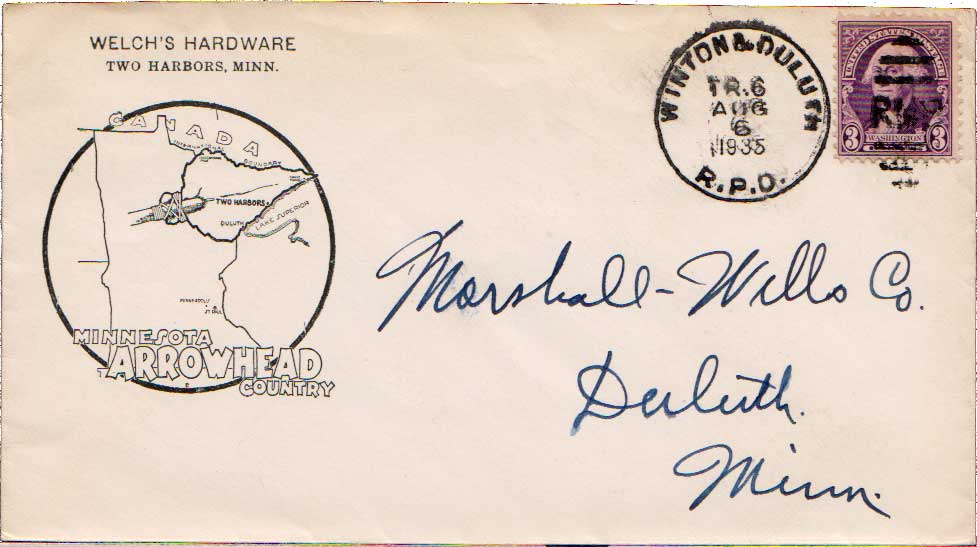 WELCH'S HARDWARE
TWO HARBORS, MINN.
WINTON & DULUTH
TR.6
AUG
6
1935
R.P.O.
UNITED STATES POSTAGE
3 WASHINGTON 3
CANADA
INTERNATIONAL BOUNDARY
TWO HARBORS
DULUTH
LAKE SUPERIOR
MINNEAPOLIS
ST. PAUL
MINNESOTA
ARROWHEAD
COUNTRY
Marshall-Wells Co.
Duluth.
Minn.